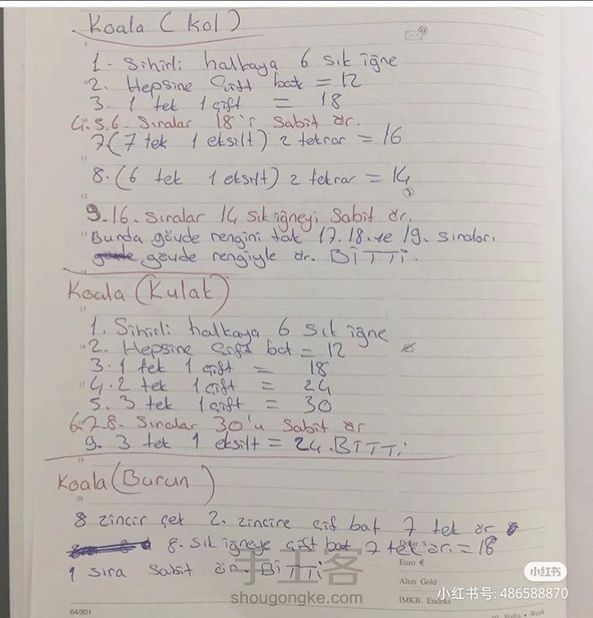 Koala (Kol)
1. Sihirli halkaya 6 sık iğne
2. Hepsine çift bat = 12
3. 1 tek 1 çift = 18
4.5.6. Sıralar 18'i Sabit ör.
7 (7 tek 1 eksilt) 2 tekrar = 16
8. (6 tek 1 eksilt) 2 tekrar = 14
9.16. Sıralar 14 sık iğneyi Sabit ör.
Burda gövde rengini tak 17.18. ve 19. sıraları
gövde rengiyle ör. BİTTİ.
Koala (Kulak)
1. Sihirli halkaya 6 sık iğne
2. Hepsine Çift bat = 12
3. 1 tek 1 çift = 18
4. 2 tek 1 çift = 24
5. 3 tek 1 çift = 30
6.7.8. Sıralar 30'u Sabit ör
9. 3 tek 1 eksilt = 24. BİTTİ
Koala (Burun)
8 zincir çek 2. zincire çif bat 7 tek ör
8. sık iğneye çift bat 7 tek ör. = 18
1 sıra sabit ör. BİTTİ
Euro €
Altın Gold
IMKB.
64/301
手工客
shougongke.com
小红书
小红书号: 486588870